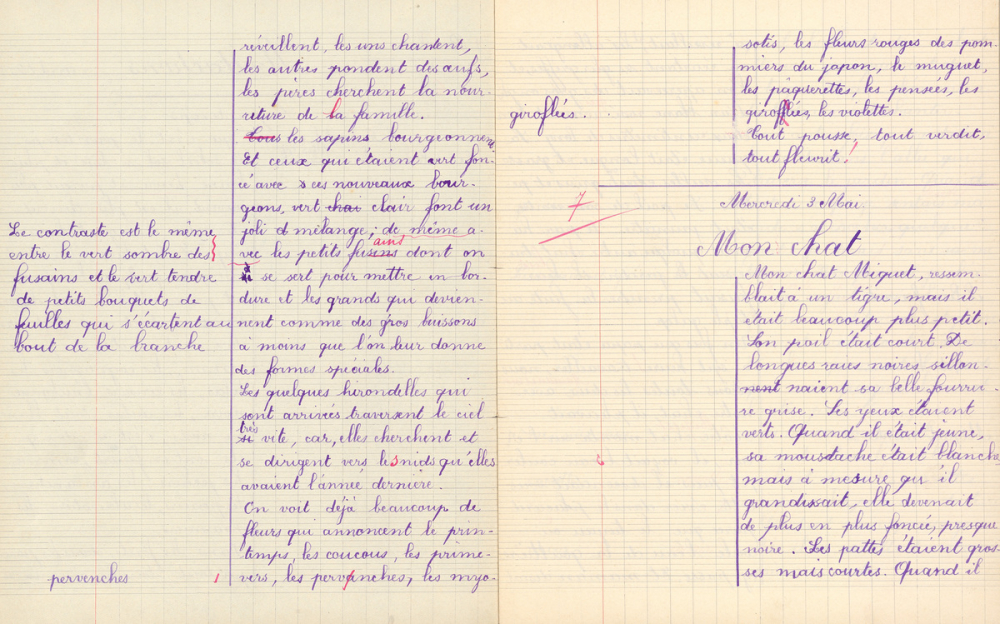 réveillent, les uns chantent,
les autres pondent des œufs,
les pères cherchent la nour-
riture de la famille.
Tous les sapins bourgeonnent
Et ceux qui étaient vert fon-
cé avec ces nouveaux bour-
geons, vert chai clair font un
joli mélange; de même a-
vec les petits fusains dont on
se sert pour mettre en bor-
dure et les grands qui devien-
nent comme des gros buissons
à moins que l'on leur donne
des formes spéciales.
Les quelques hirondelles qui
sont arrivées traversent le ciel
très
si vite, car, elles cherchent et
se dirigent vers les nids qu'elles
avaient l'année dernière.
On voit déjà beaucoup de
fleurs qui annoncent le prin-
temps, les coucous, les prime-
vers, les pervenches, les myo-
Le contraste est le même
entre le vert sombre des
fusains et le vert tendre
de petits bouquets de
feuilles qui s'écartent au
bout de la branche
pervenches 1
sotis, les fleurs rouges des pom-
miers du japon, le muguet,
les pâquerettes, les pensées, les
giroflées, les violettes.
Tout pousse, tout verdit,
tout fleurit!
giroflées.
7
Mercredi 3 Mai.
Mon chat
Mon chat Miguet, ressem-
blait à un tigre, mais il
était beaucoup plus petit.
Son poil était court. De
longues raies noires sillon-
nent naient sa belle fourru-
re grise. Ses yeux étaient
verts. Quand il était jeune,
sa moustache était blanche
mais à mesure qu'il
grandissait, elle devenait
de plus en plus foncée, presque
noire. Les pattes étaient gros-
ses mais courtes. Quand il